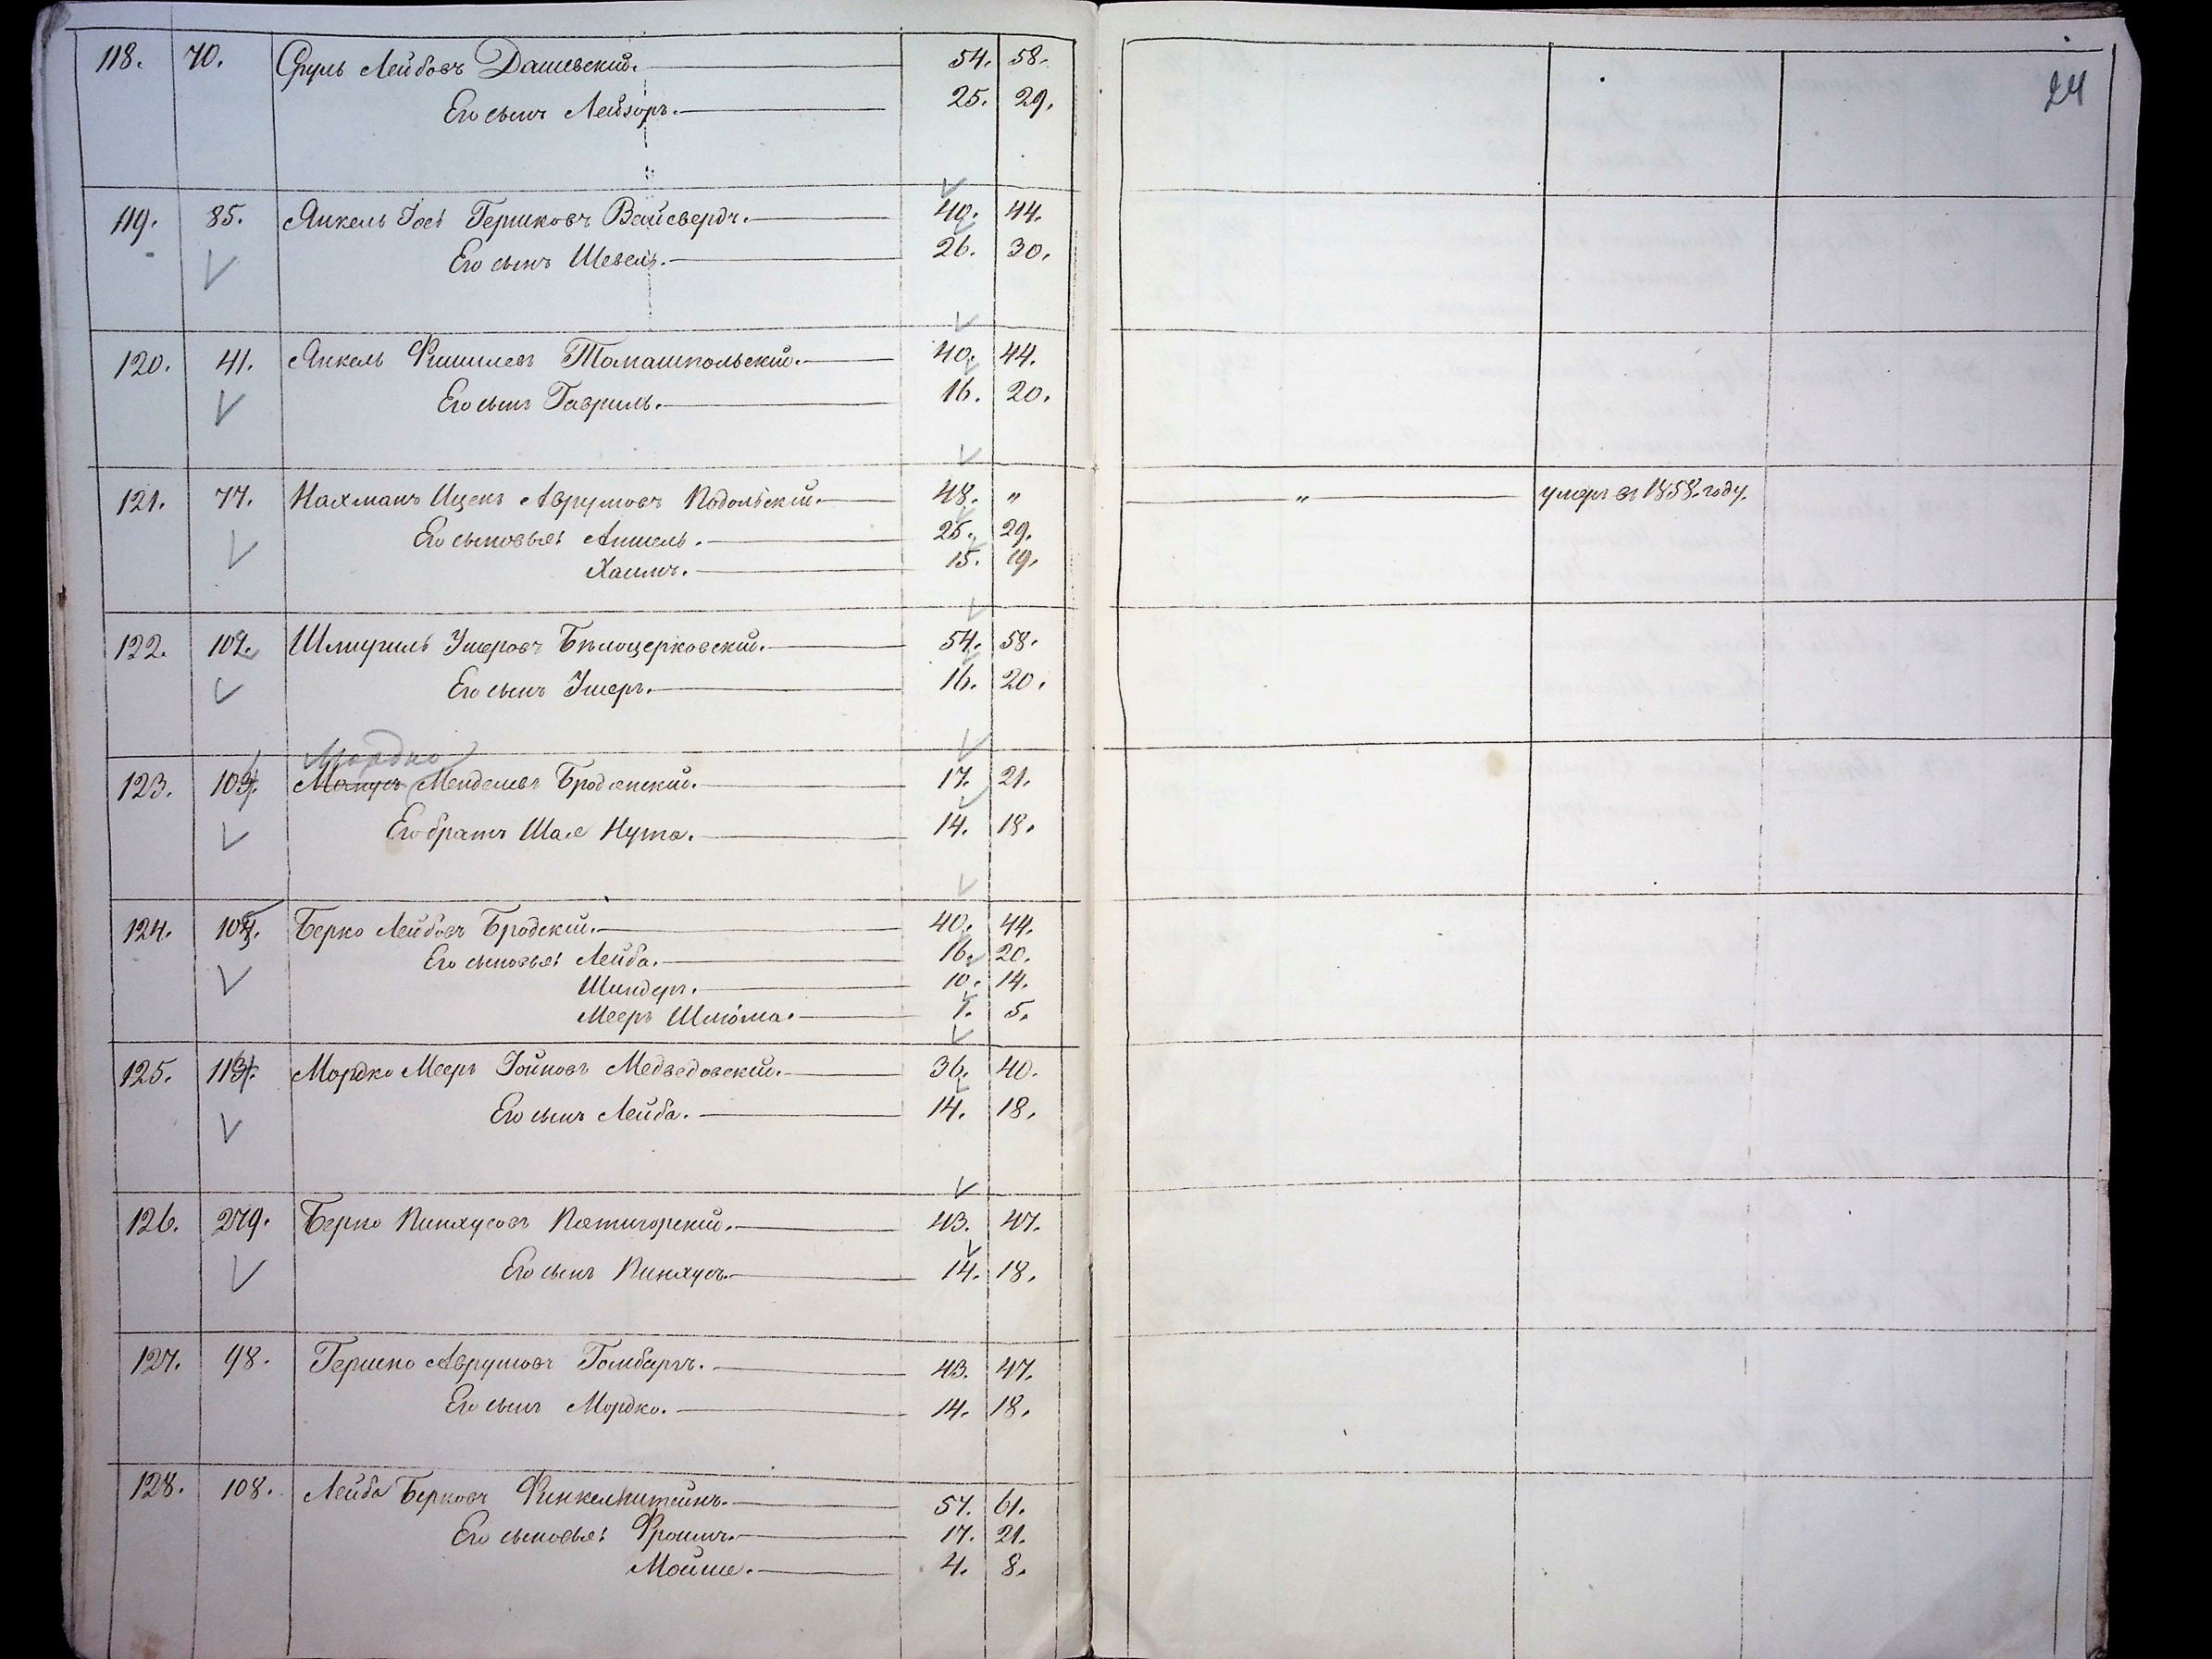 24
118. 70. Сруль Лейбовъ Дашевский. 54. 58.
Его сынъ Лейзоръ. 25. 29.
119. 85. Янкель Іось Гершковъ Вайсвердъ. 40. 44.
Его сынъ Шевель. 26. 30.
120. 41. Янкель Фишилевъ Томашпольский. 40. 44.
Его сынъ Гаврилъ. 16. 20.
121. 77. Нахманъ Ицекъ Аврумовъ Подольский. 48. " " умеръ въ 1858. году.
Его сыновья: Аншель. 25. 29.
Хаимъ. 15. 19.
122. 102. Шмуриль Ушеровъ Бѣлоцерковский. 54. 58.
Его сынъ Ушеръ. 16. 20.
Мордко
123. Менделевъ Бродянский. 17. 21.
Его братъ Шая Нута. 14. 18.
124. Берко Лейбовъ Бродский. 40. 44.
Его сыновья: Лейба. 16. 20.
Шиндеръ. 10. 14.
Мееръ Шлёма. 1. 5.
125. Мордко Мееръ Іойновъ Медведовский. 36. 40.
Его сынъ Лейба. 14. 18.
126. 279. Берко Пинхусовъ Пятигорский. 43. 47.
Его сынъ Пинхусъ. 14. 18.
127. 98. Гершко Аврумовъ Гомбаргъ. 43. 47.
Его сынъ Мордко. 14. 18.
128. 108. Лейба Берковъ Финкельштейнъ. 57. 61.
Его сыновья: Фроимъ. 17. 21.
Мойше. 4. 8.